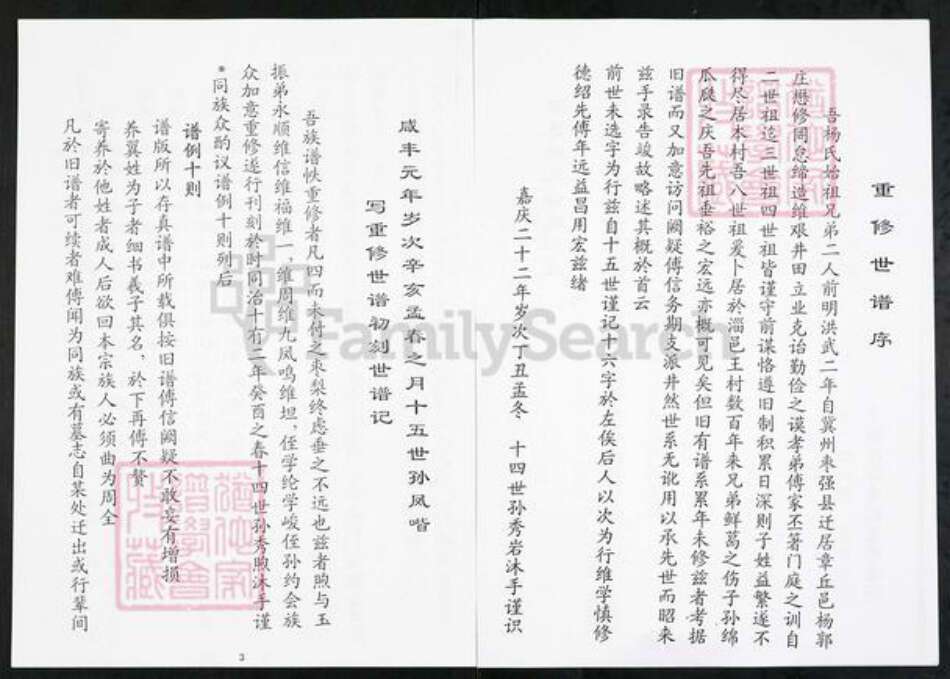 重修世谱序
吾杨氏始祖兄弟二人前明洪武二年自冀州枣强县迁居章丘邑杨郭
庄懋修罔怠缔造维艰井田立业克诒勤俭之谟孝弟傅家丕著门庭之训自
二世祖迄三世祖四世祖皆谨守前谋恪遵旧制积累日深则子姓益繁遂不
得尽居本村吾八世祖爰卜居於淄邑王村数百年来兄弟鲜葛之伤子孙绵
瓜瓞之庆吾先祖垂裕之宏远亦概可见矣但旧有谱系累年未修兹者考据
旧谱而又加意访问阙疑傅信务期支派井然世系无讹用以承先世而昭来
兹手录告竣故略述其概於首云
前世未选字为行兹自十五世谨记十六字於左俟后人以次为行维学慎修
德绍先傅年远益昌用宏兹绪
嘉庆二十二年岁次丁丑孟冬 十四世孙秀岩沐手谨识
咸丰元年岁次辛亥孟春之月十五世孙凤喈
写重修世谱初刻世谱记
吾族谱帙重修者凡四而未付之枣梨终虑垂之不远也兹者煦与玉
振弟永顺维信维福维一，维周维九凤鸣维坦，侄学纶学峻侄孙约会族
众加意重修遂行刊刻於时同治十有二年癸酉之春十四世孙秀煦沐手谨
*同族众酌议谱例十则列后
谱例十则
谱版所以存真谱中所载俱按旧谱傅信阙疑不敢妄有增损
养翼姓为子者细书义子其名，於下再傅不赘
寄养於他姓者成人后欲回本宗族人必须曲为周全
凡於旧谱者可续者难傅闻为同族或有墓志自某处迁出或行辈间
3
FamilySearch